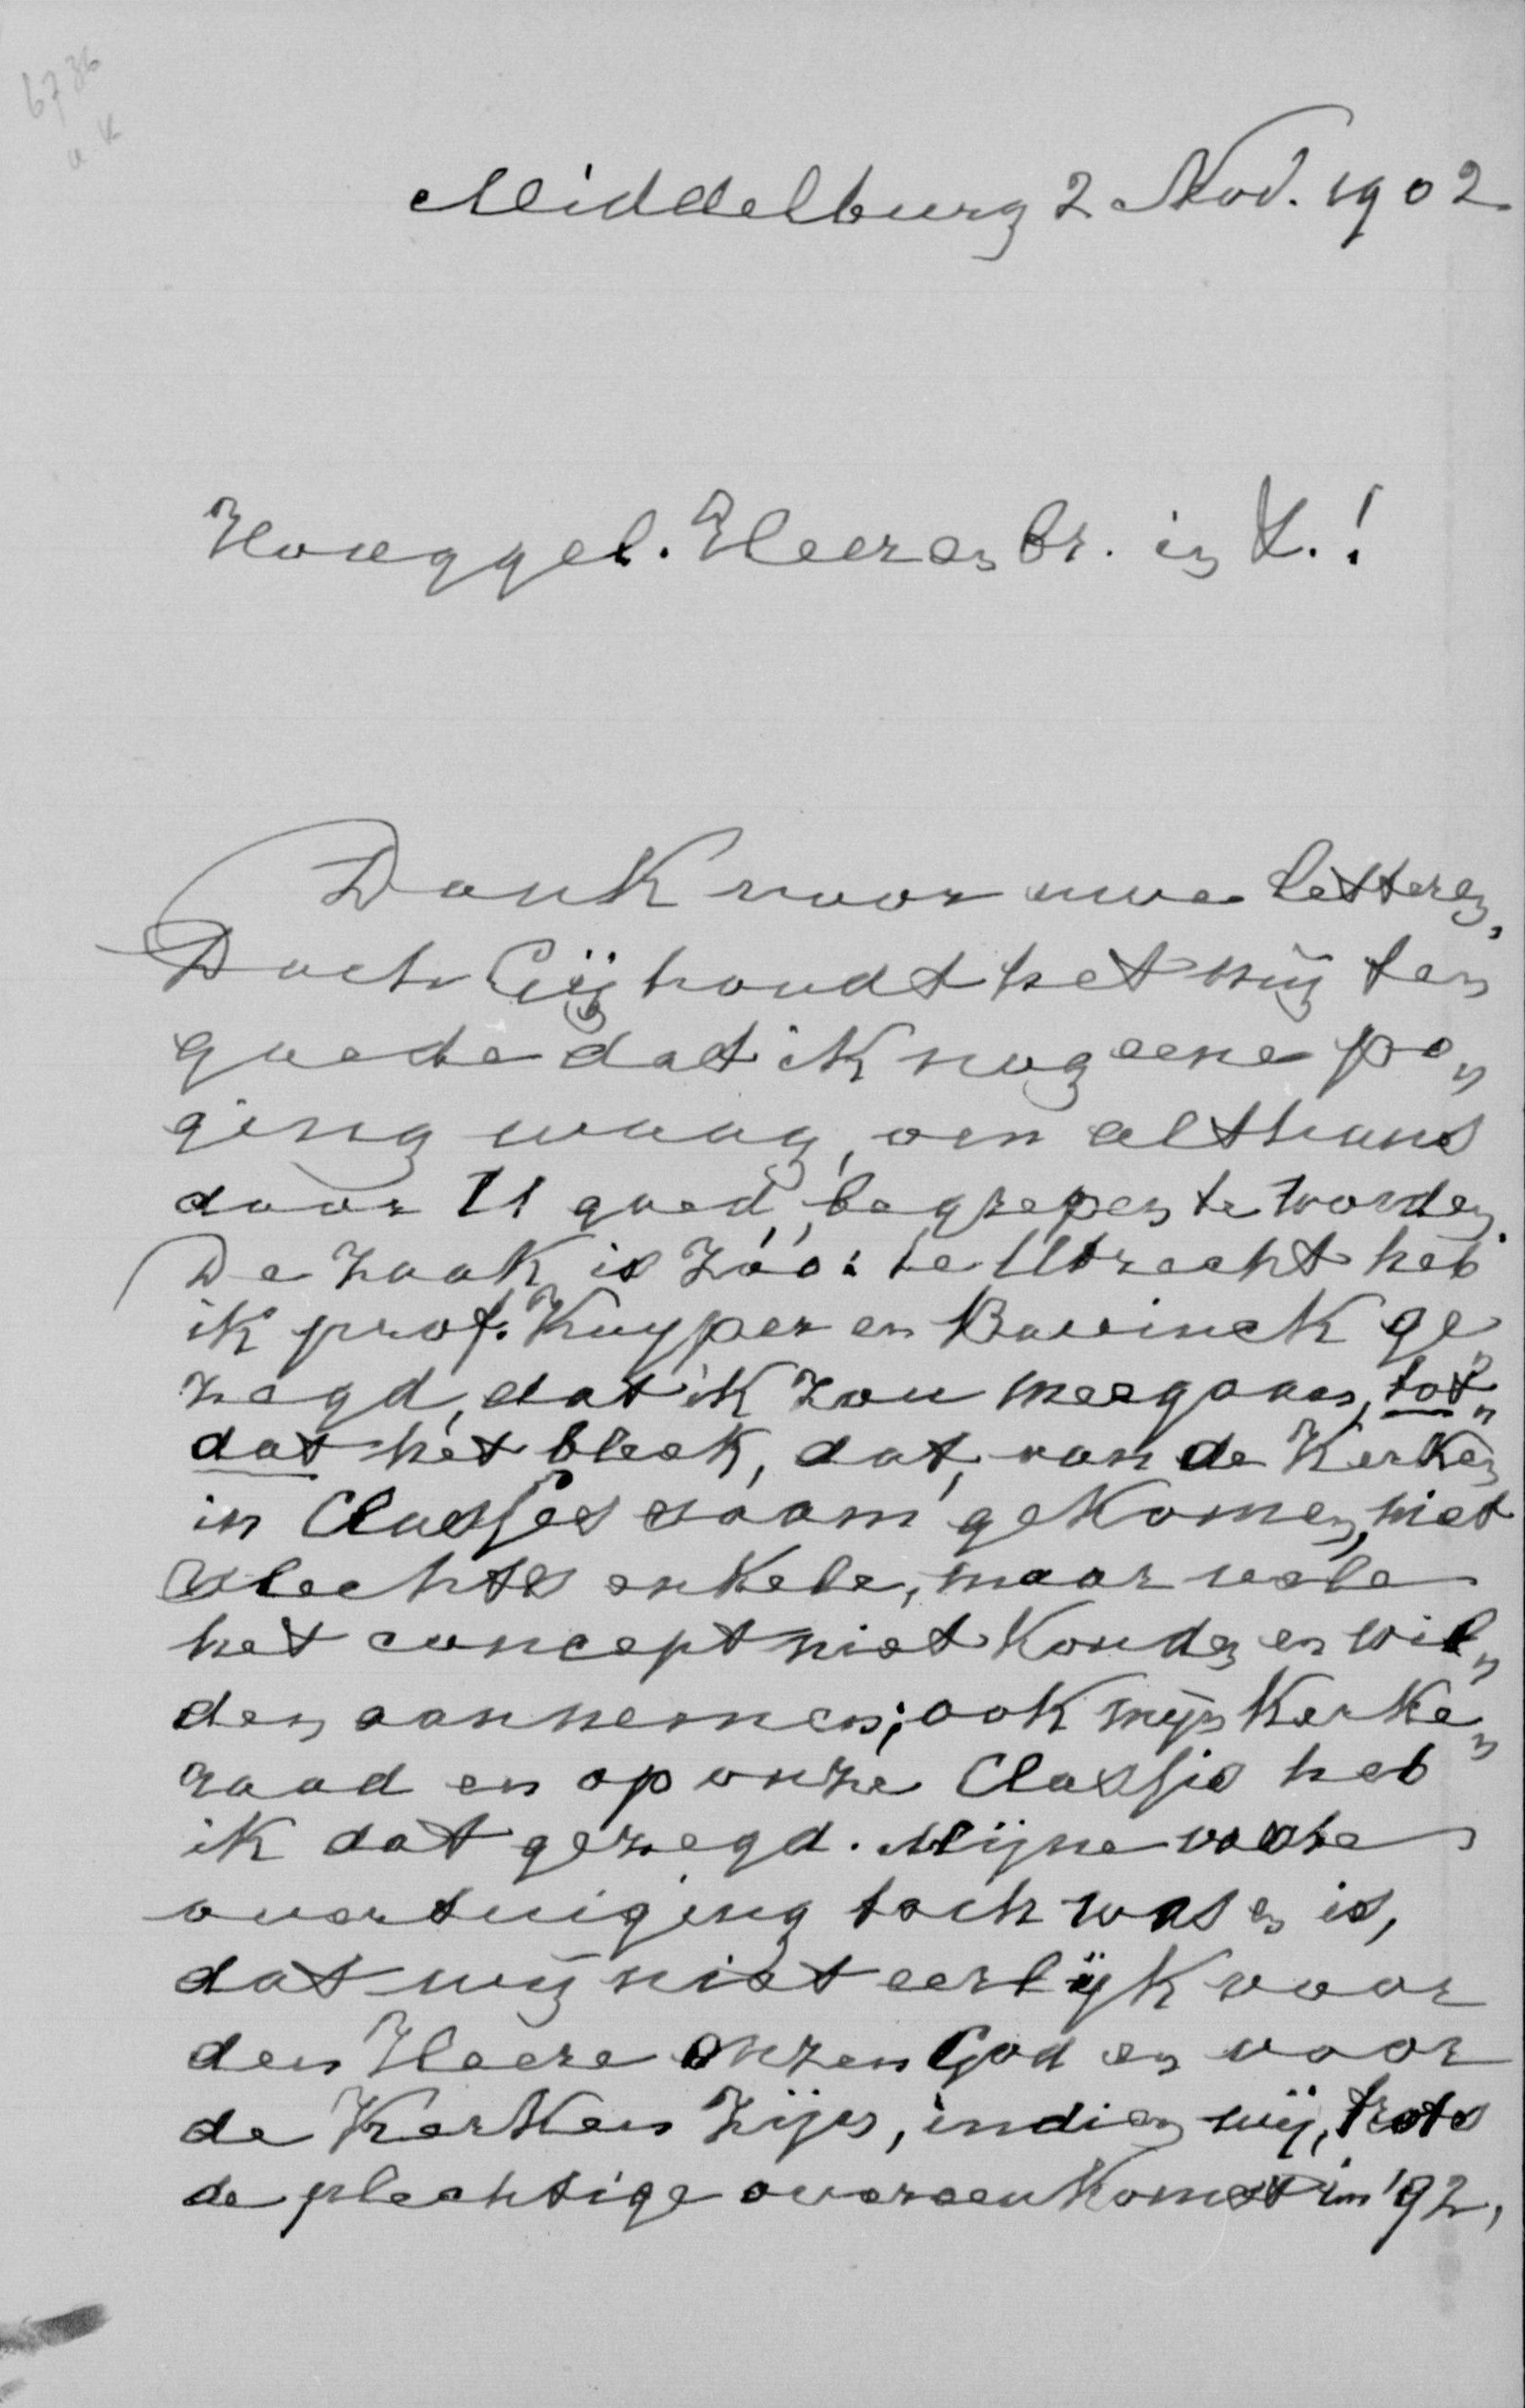 6736
Middelburg 2 Nov. 1902
Hooggel. Heer en br. in X.!
Dank voor uwe letteren,
Doch Gij houdt het mij ten
goede dat ik nog eene po„
ging waag, om althans
door U goed begrepen te worden.
De zaak is zóó: te Utrecht heb
ik prof. Kuyper en Bavinck ge„
zegd, dat ik zou meegaan, tot„
dat het bleek, dat, van de Kerken
in Classes saam gekomen, niet
slechts enkele, maar vele
het concept niet konden en wil„
den aannemen; ook mijn Kerke„
raad en op onze Classis heb
ik dat gezegd. Mijne vaste
overtuiging toch was en is,
dat wij niet eerlijk voor
den Heere onzen God en voor
de Kerken zijn, indien wij, trots
de plechtige overeenkomst in '92,